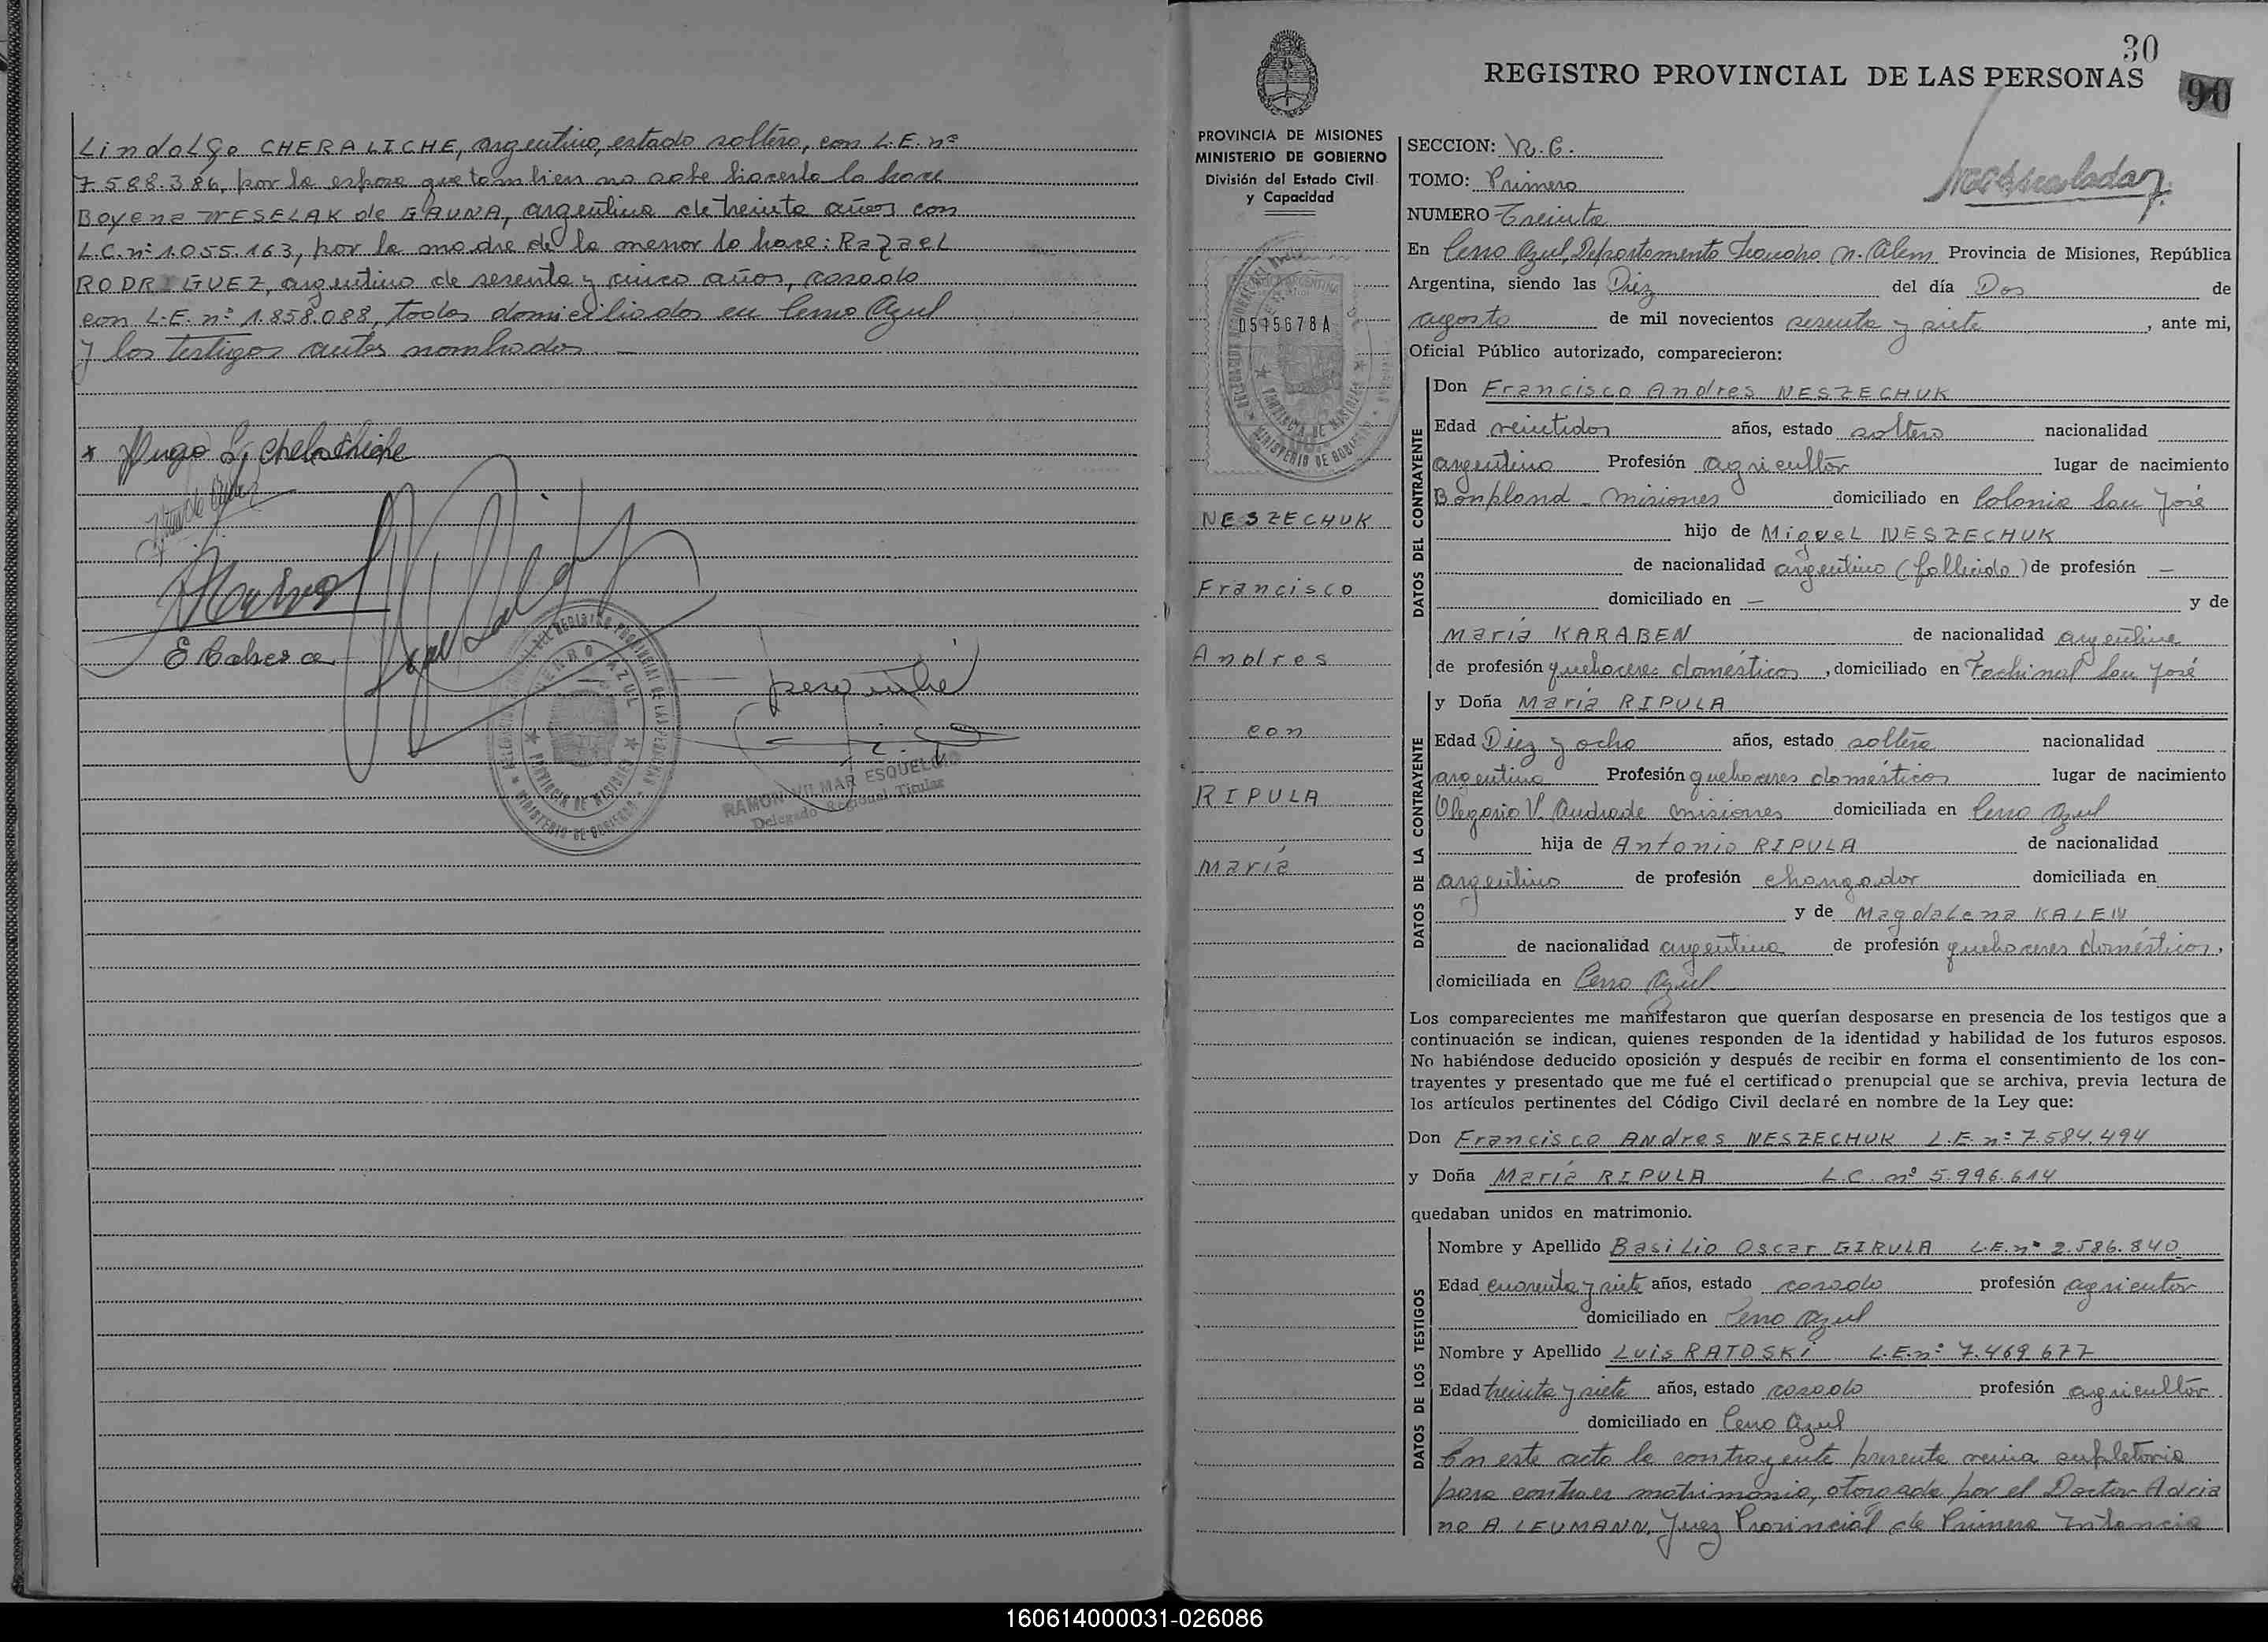 Lindolfo CHERALICHE, argentino, estado soltero, con L.E. nº
7.588.386, por la esposa que tambien no sabe hacerlo lo hace
Boyena WESELAK de GAUNA, argentina de treinta años con
L.C. nº 1.055.163, por la madre de la menor lo hace: Rafael
RODRIGUEZ, argentino de sesenta y cinco años, casado
con L.E. nº 1.858.088, todos domiciliados en Cerro Azul
y los testigos antes nombrados. —
Hugo L. 
E Cabrera
CERRO AZUL
PROVINCIA DE MISIONES
MINISTERIO DE GOBIERNO
RAMON VILMAR ESQUELCIO
Delegado Regional Titular
30
REGISTRO PROVINCIAL DE LAS PERSONAS
90
PROVINCIA DE MISIONES
MINISTERIO DE GOBIERNO
División del Estado Civil
y Capacidad
0515678A
PROVINCIA DE MISIONES
MINISTERIO DE GOBIERNO
NESZECHUK
Francisco
Andres
con
RIPULA
María
SECCION: R.C.
TOMO: Primero
NUMERO Treinta
En Cerro Azul, Departamento Leandro N. Alem Provincia de Misiones, República
Argentina, siendo las Diez del día Dos de
agosto de mil novecientos sesenta y siete, ante mi,
Oficial Público autorizado, comparecieron:
DATOS DEL CONTRAYENTE
Don Francisco Andres NESZECHUK
Edad veintidos años, estado soltero nacionalidad
argentino Profesión agricultor lugar de nacimiento
Bonpland - Misiones domiciliado en Colonia San José
hijo de Miguel NESZECHUK
de nacionalidad argentino (fallecido) de profesión —
domiciliado en — y de
María KARABEN de nacionalidad argentina
de profesión quehaceres domésticos, domiciliado en Fachinal San José
DATOS DE LA CONTRAYENTE
y Doña María RIPULA
Edad Diez y ocho años, estado soltera nacionalidad
argentina Profesión quehaceres domésticos lugar de nacimiento
Olegario V. Andrade Misiones domiciliada en Cerro Azul
hija de Antonio RIPULA de nacionalidad
argentino de profesión changador domiciliada en
y de Magdalena KALEN
de nacionalidad argentina de profesión quehaceres domésticos,
domiciliada en Cerro Azul
Los comparecientes me manifestaron que querían desposarse en presencia de los testigos que a
continuación se indican, quienes responden de la identidad y habilidad de los futuros esposos.
No habiéndose deducido oposición y después de recibir en forma el consentimiento de los con-
trayentes y presentado que me fué el certificado prenupcial que se archiva, previa lectura de
los artículos pertinentes del Código Civil declaré en nombre de la Ley que:
Don Francisco Andres NESZECHUK L.E. nº 7.584.494
y Doña María RIPULA L.C. nº 5.996.614
quedaban unidos en matrimonio.
DATOS DE LOS TESTIGOS
Nombre y Apellido Basilio Oscar GIRULA L.E. nº 2.586.840
Edad cuarenta y siete años, estado casado profesión agricutor
domiciliado en Cerro Azul
Nombre y Apellido Luis RATOSKI L.E. nº 7.469.677
Edad treinta y siete años, estado casado profesión agricultor
domiciliado en Cerro Azul
En este acto la contrayente presenta venia supletoria
para contraer matrimonio, otorgada por el Doctor Adria
no A. LEUMANN, Juez Provincial de Primera Intancia
160614000031-026086